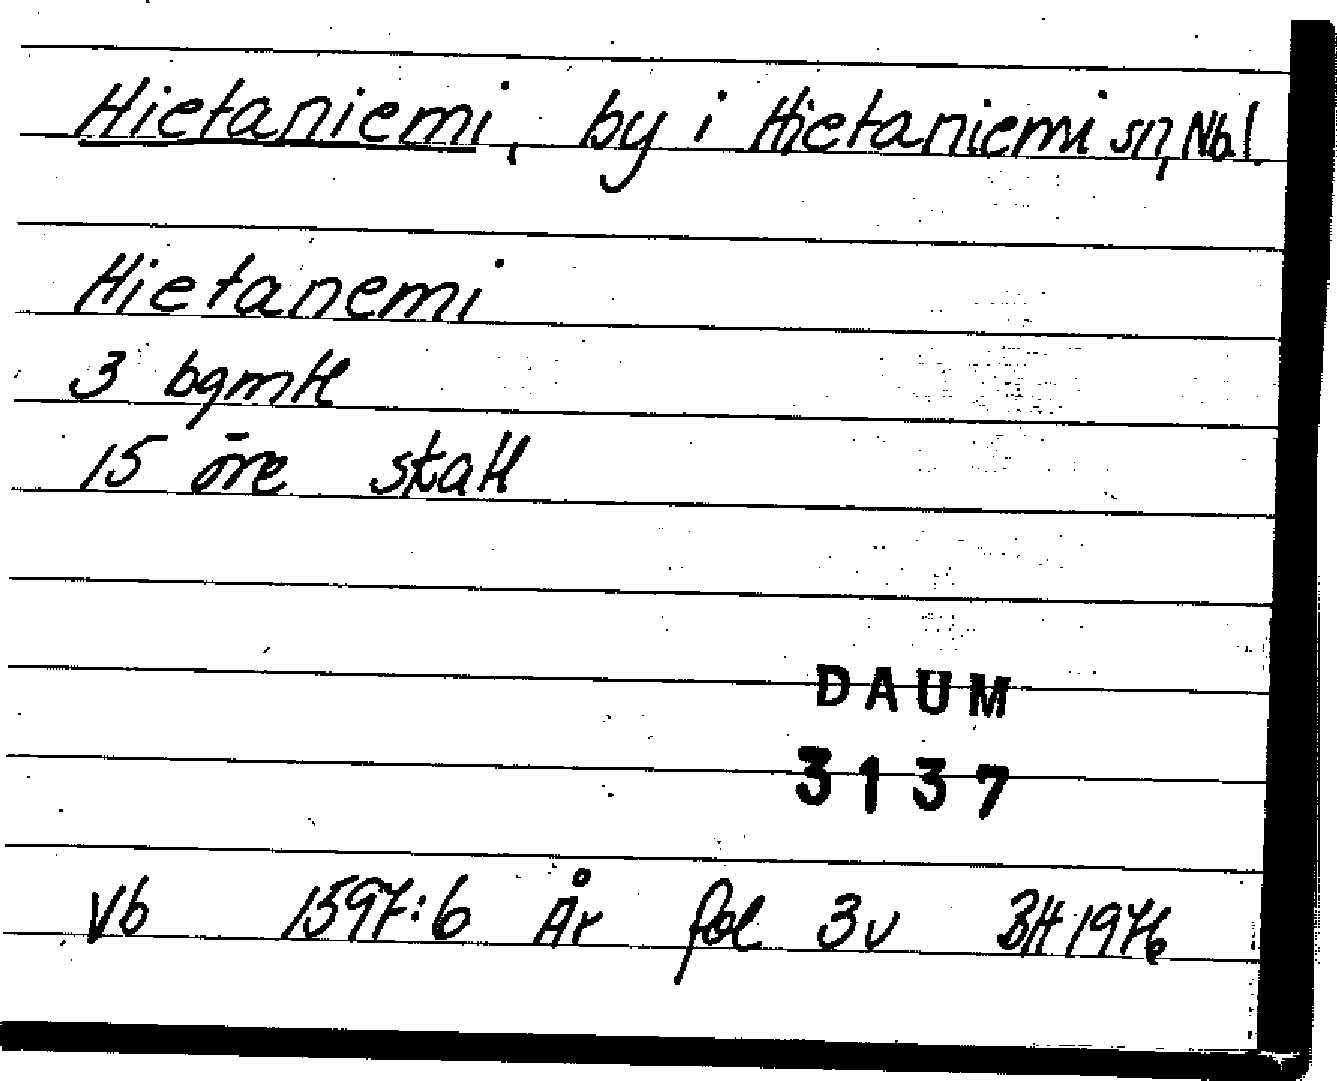 Hietaniemi, by i Hietaniemi sn, Nbl.
Hietanemi
3 bgmtl
15 öre skatt
DAUM
3137
Vb 1597:6 År fol 3v BH 1976